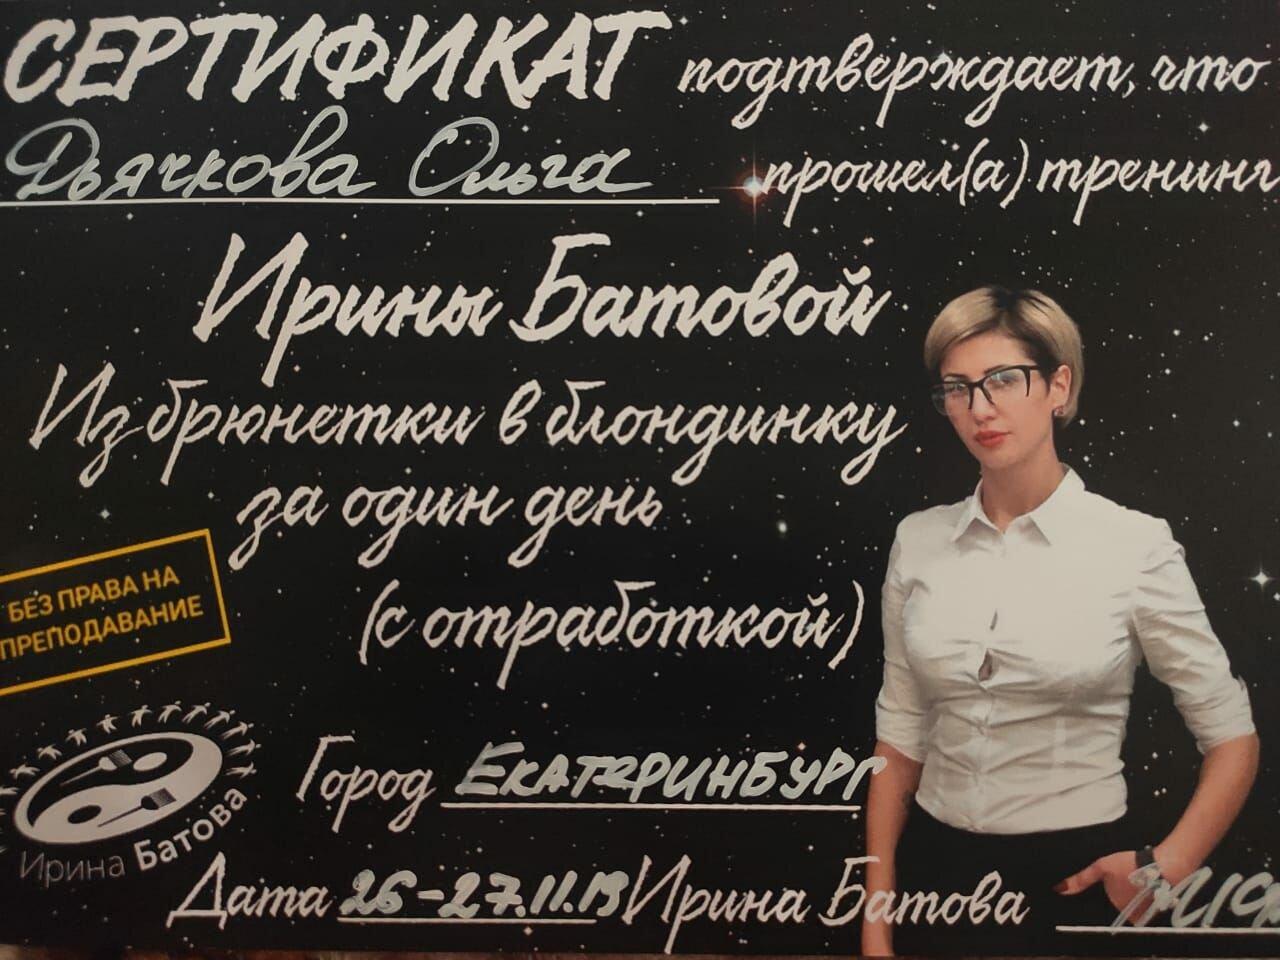 СЕРТИФИКАТ подтверждает, что
Дьячкова Ольга прошел(а) тренинг
Ирины Батовой
Из брюнетки в блондинку
за один день
(с отработкой)
БЕЗ ПРАВА НА
ПРЕПОДАВАНИЕ
Город ЕКАТЕРИНБУРГ
Ирина Батова
Дата 26-27.11.19 Ирина Батова